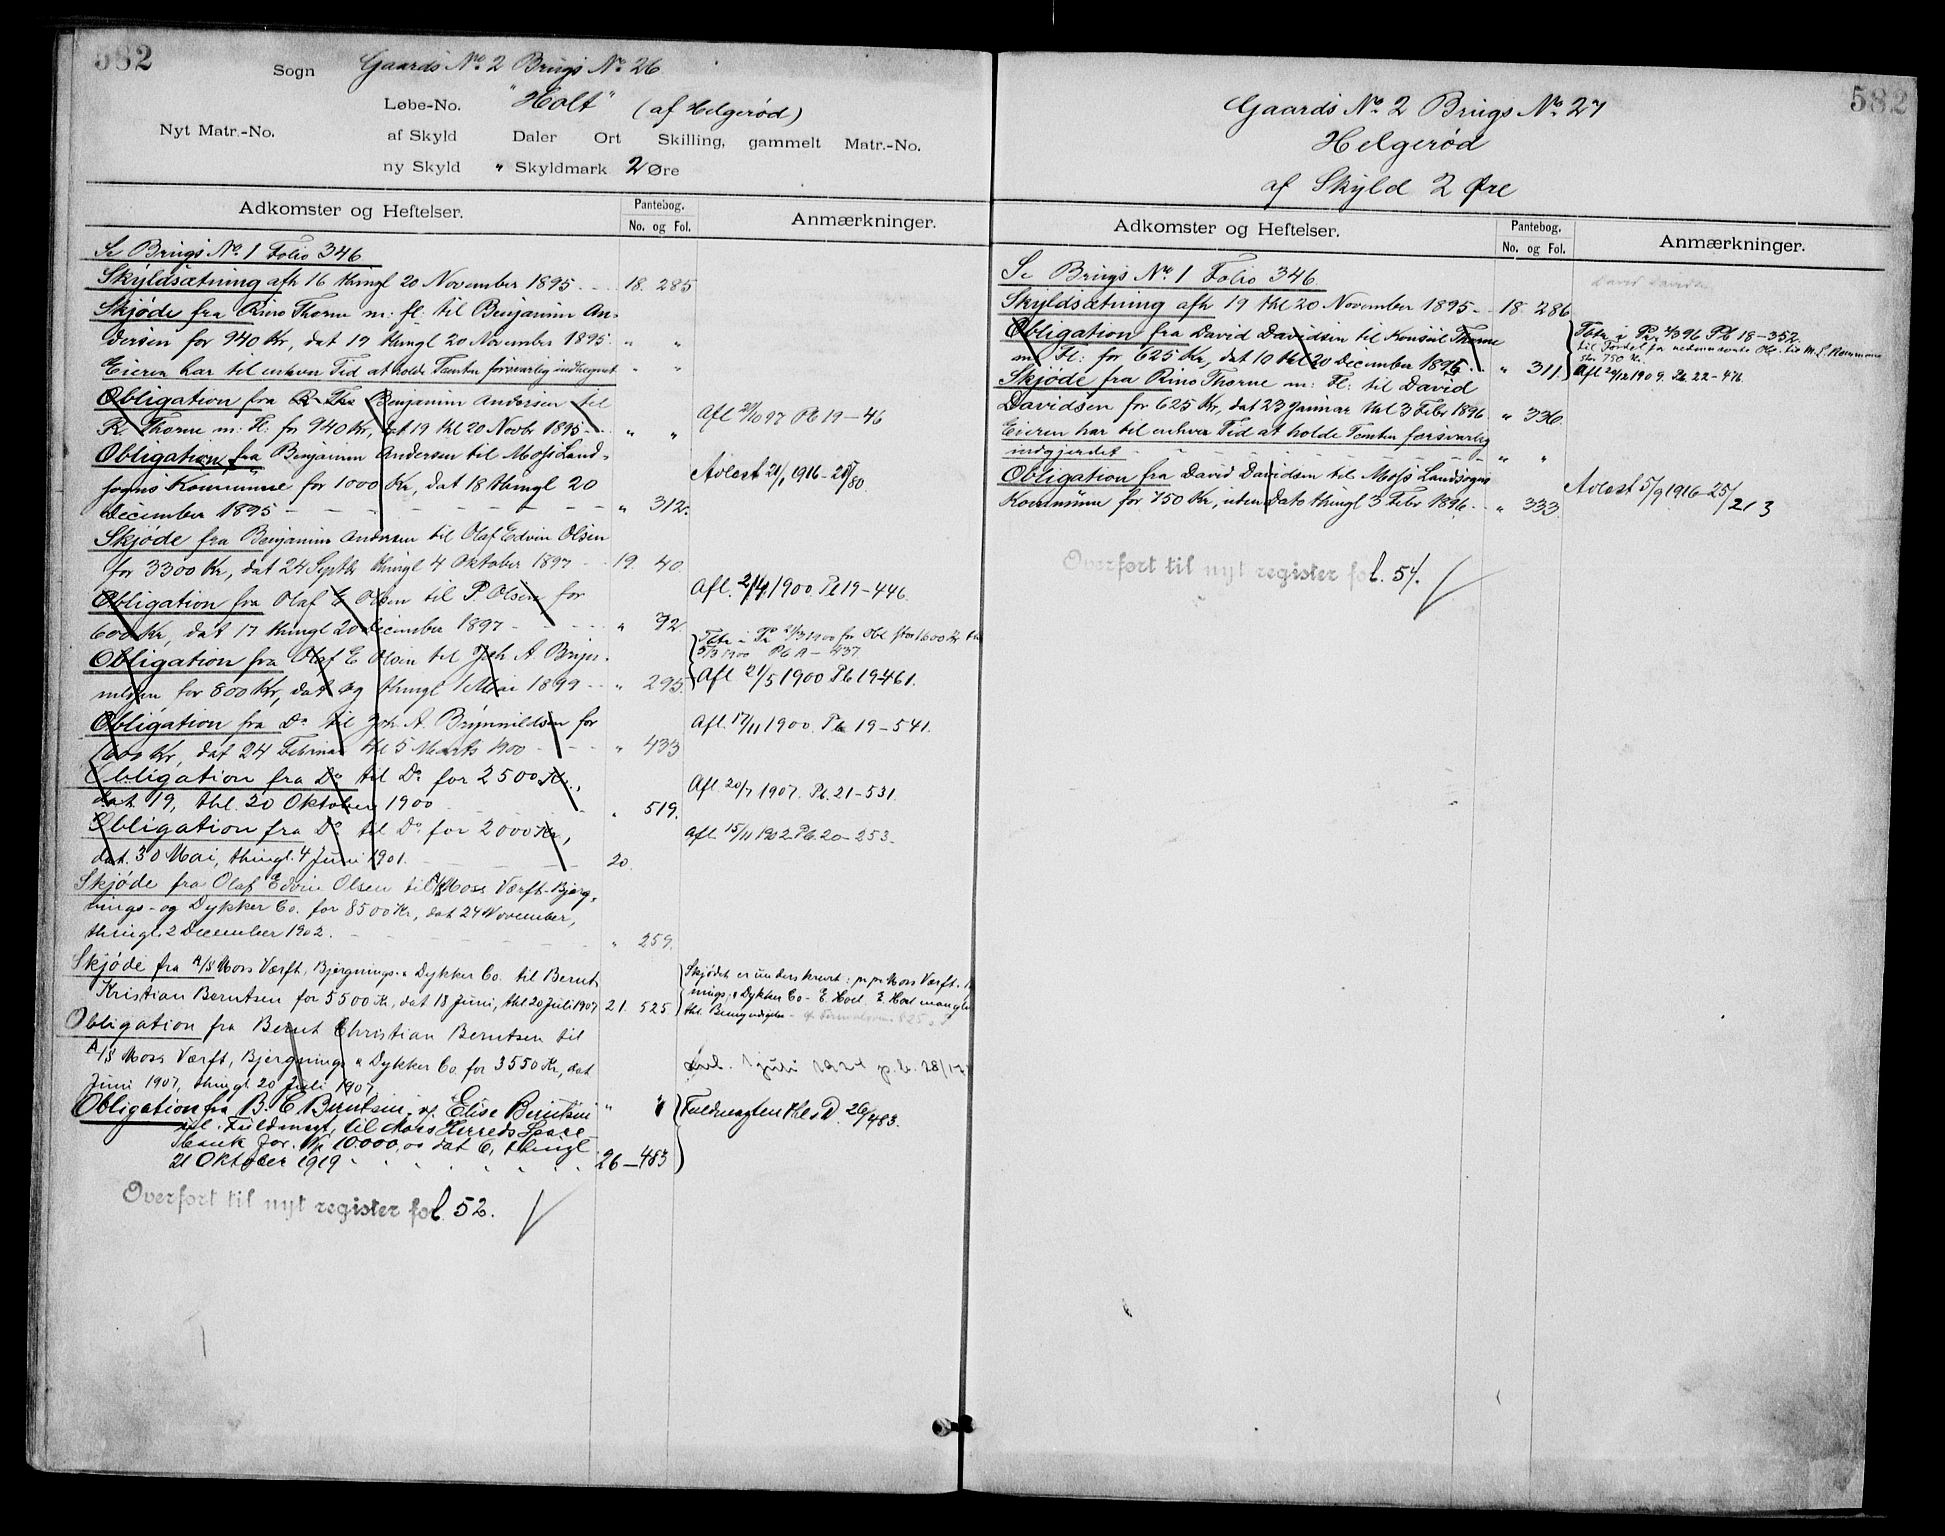 582
Sogn Gaards No 2 Brugs No 26
Løbe-No. "Holt" (af Helgerød)
Nyt Matr.-No. af Skyld Daler Ort Skilling, gammelt Matr.-No.
ny Skyld " Skyldmark 2 Øre
Adkomster og Heftelser. Pantebog. No. og Fol. Anmærkninger.
Se Brugs No 1 Folio 346
Skyldsætning afh 16 thingl 20 November 1895 18. 285
Skjøde fra Rino Thorne m: fl: til Benjamin An-
dersen for 940 Kr, dat 19 thingl 20 November 1895 " "
Eieren har til enhver Tid at holde Tomten forsvarlig indhegnet " "
Obligation fra Benjamin Andersen til
R. Thorne m: Fl. for 940 Kr, dat 19 thl 20 Novbr 1895 " " Afl 97 Pb 19-46
Obligation fra Benjamin Andersen til Moss Land-
sogns Kommune for 1000 Kr, dat 18 thingl 20 Avlest 21/1 1916-25/80
December 1895 " 312.
Skjøde fra Benjamin Andersen til Olaf Edvin Olsen
for 3300 Kr, dat 24 Septbr thingl 4 Oktober 1897 19. 40.
Obligation fra Olaf E Olsen til P Olsen for Afl. 1900 Pb 19-446.
600 Kr, dat 17 thingl 20 December 1897 " 72.
Obligation fra Olaf E Olsen til Joh A. Bryn- 1900 for Obl stor 1600 Kr
nildsen for 800 Kr, dat og thingl 1 Mai 1899 " 295. Afl 21/5 1900 Pb 19-461.
Obligation fra Do til Joh A. Brynnildsen for Afl. 17/11 1900. Pb 19-541.
1600 Kr, dat 24 Februar thl 5 Marts 1900 " 433
Obligation fra Do til Do for 2500 Kr.,
dat 19, thl. 20 Oktober 1900 " 519. Afl. 20/7 1907. Pb. 21-531.
Obligation fra Do til Do for 2000 Kr, Afl 15/11 1902 Pb. 20-253.
dat. 30 Mai, thingl. 4 Juni 1901. 20.
Skjøde fra Olaf Edvin Olsen til A/S Moss Værft-Bjerg-
nings- og Dykker Co. for 8500 Kr, dat 24 November,
thingl. 2 December 1902. " 259.
Skjøde fra A/S Moss Værft, Bjergnings- & Dykker Co. til Bernt Skjødet er underskrevet: pr pr Moss Værft.
Kristian Berntsen for 5500 Kr, dat 18 Juni, thl 20 Juli 1907 21. 525. nings- & Dykker Co - E. Hoel. E. Hoel mangler
Obligation fra Bernt Christian Berntsen til thl
A/S Moss Værft, Bjergnings & Dykker Co. for 3550 Kr, dat juli 1924 p.b. 28/
Juni 1907, thingl 20 Juli 1907 " "
Obligation fra B. C Berntsen og Elise Berntsen
vel. Fuldmagt, til Moss Herreds Spare Fuldmagten thl s D. 26/483.
bank for Kr 10.000,00 dat 6, thingl
21 Oktober 1919 26-483
Overført til nyt register fol. 52.
582
Gaards No 2 Brugs No 27
Helgerød
af Skyld 2 Øre
Adkomster og Heftelser. Pantebog. No. og Fol. Anmærkninger.
Se Brugs No 1 Folio 346
Skyldsætning afh 19 thl 20 November 1895 18. 286
Obligation fra David Davidsen til Konsul Thorne 96 Pb 18-352.
m. Fl: for 625 Kr, dat 10 thl 20 December 1895 " 311. stor 750 Kr.
Skjøde fra Rino Thorne m: Fl: til David Afl 1909. Pb. 22-476
Davidsen for 625 Kr, dat 23 Januar thl 3 Febr 1896 " 336.
Eieren har til enhver Tid at holde Tomten forsvarlig
indgjerdet " "
Obligation fra David Davidsen til Moss Landsogns
Kommune for 750 Kr, uden Dato thingl 3 Febr 1896 " 333. Avlest 5/9 1916-25/213
Overført til nyt register fol. 54.